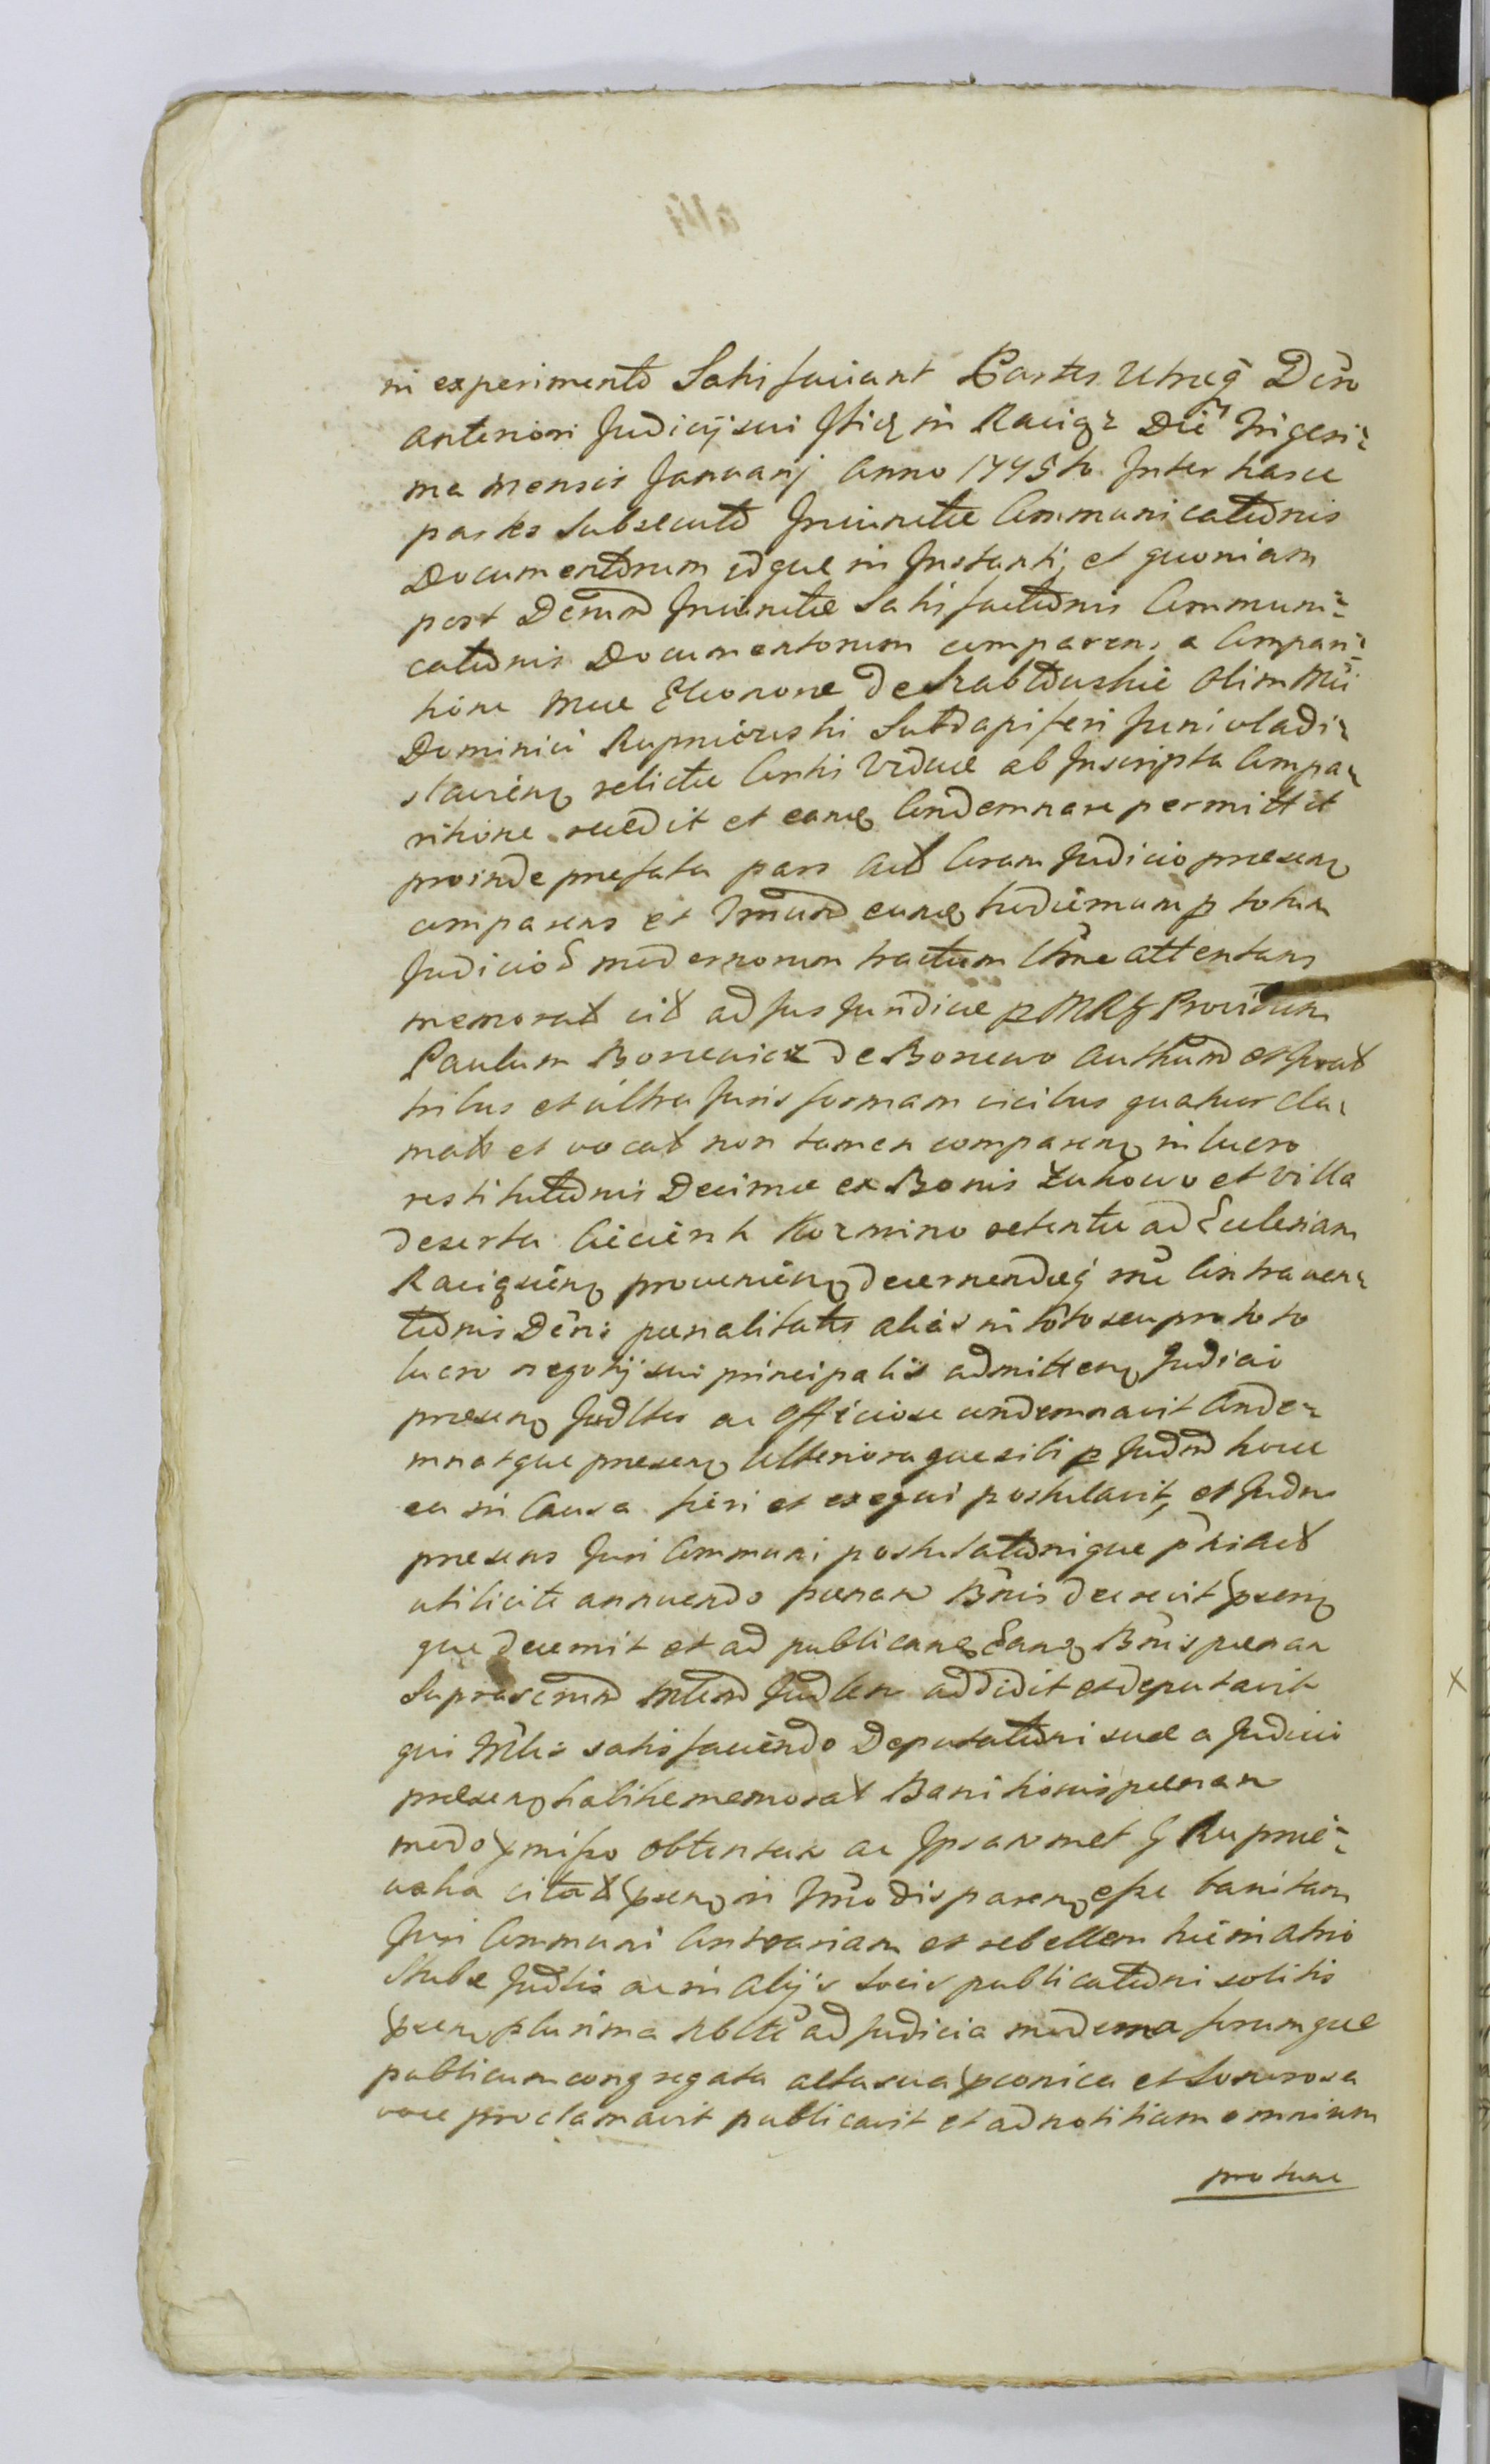 ni experimento Satisfaciant Partes Utraq Dcro
anteriori Judicij sui Istic in Raciąz Die Trigesi-
ma mensis Januarij Anno 1745to Inter hasce
partes subsecuto Injunctae Communicationis
Documentorum idque in Instanti, et quoniam
post Dcrum Injunctae Satisfactionis Communi-
cationis Documentorum comparens a Compari-
tione Mcae Eleonorae de olim Mci
Dominici Rupniewski Subdapiferi Junivladi-
slavien relictae Consti Viduae ab Inscripta Compa-
ritione recedit et eane Condemnare permittit
proinde praefata pars Act Coram Judicio praesen
comparens et Tmum eund tudiemum p totum
Judicior modernorum tractum Ctme attentans
memorat cit ad Jus Juridice p MRf Providum
Paulum Borzewicz de Borzewo authum et Jurat
tribus et ultra Juris formam vicibus quatuor cla-
mat et vocat non tamen comparen in lucro
restitutionis Decimae ex Bonis Żukowo et Villa
deserta Kozmino retentae ad Ecclesiam
Raciązien provenien decernendaeq Contraven-
tionis Dcris paenalitatis alias in toto seu pro toto
lucro negotij sui principalis admitten Judicio
praesen Judlter ac Officiose condemnavit Conde-
mnatque praesen Ulterioraque sibi p Judm hocce
ea in Causa fieri et exequi postulavit, et Judm
praesens Juri Communi postulationique Act
utilicite annuendo paenam Bnis decrevit praesen
que decernit et ad publicane Eane Bnis paenam
Suprascrum Mlem Judlem addidit et deputavit
qui Mlis satisfaciendo Deputationi suae a Judicio
praesen talite memorat Banitionis paenam
modo pmisso obtentam ac Ipsammet G Rupnie-
wska citat praesen in Tmo disparen esse banitam
Juri Communi Contrariam et rebellem hic in Atrio
Stubae Judlis ac in alijs locis publicationi solitis
praesen plurima Nbltte ad Judicia moderna forumque
publicum congregata alta sua praeconica et sonorosa
voce proclamavit publicavit et ad notitiam omnium
pro tunc